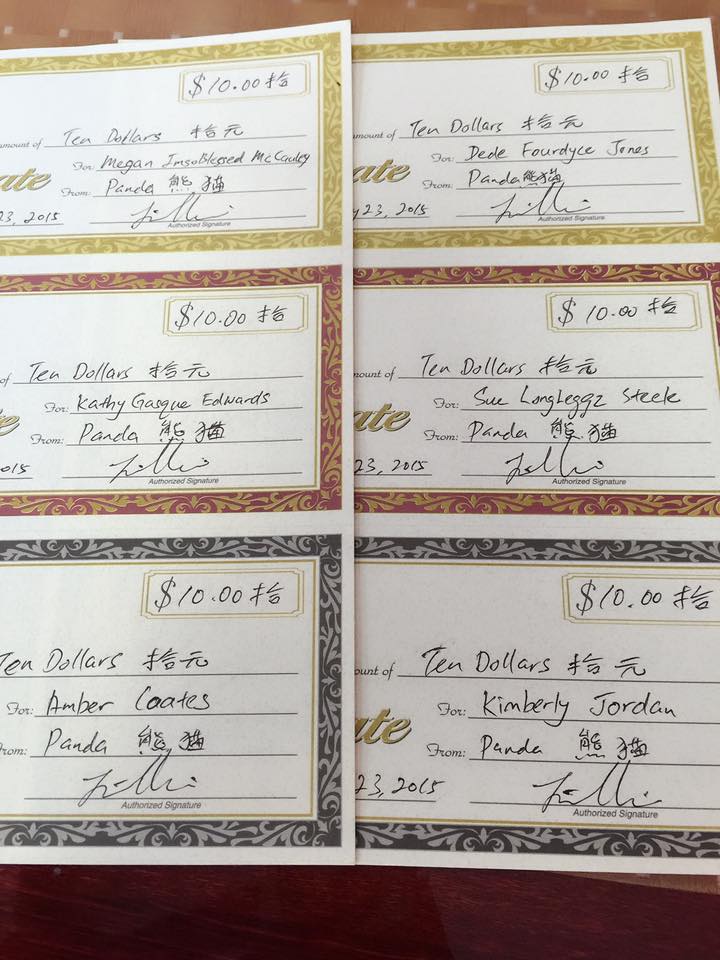 $10.00 拾
amount of Ten Dollars 拾元
For: Megan ImsoBlessed McCauley
ate
From: Panda 熊猫
23, 2015
Authorized Signature
$10.00 拾
amount of Ten Dollars 拾元
For: Dede Fourdyce Jones
ate
From: Panda 熊猫
y 23, 2015
Authorized Signature
$10.00 拾
of Ten Dollars 拾元
For: Kathy Gasque Edwards
e
From: Panda 熊猫
2015
Authorized Signature
$10.00 拾
mount of Ten Dollars 拾元
For: Sue LongLeggz Steele
ate
From: Panda 熊猫
23, 2015
Authorized Signature
$10.00 拾
Ten Dollars 拾元
For: Amber Coates
From: Panda 熊猫
Authorized Signature
$10.00 拾
ount of Ten Dollars 拾元
For: Kimberly Jordan
ate
From: Panda 熊猫
23, 2015
Authorized Signature